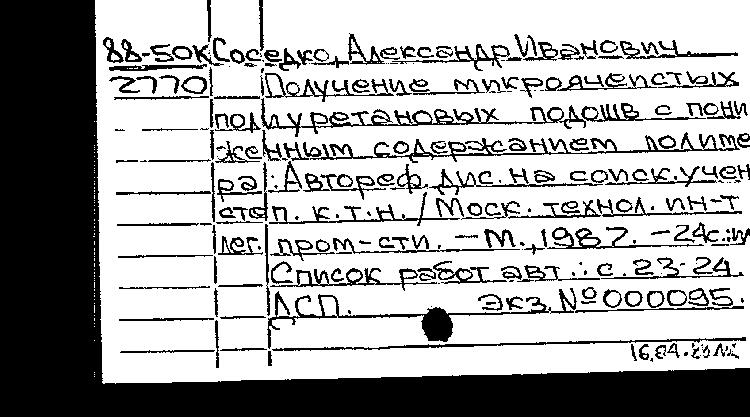 88-50К Соседко, Александр Иванович.
2770 Получение микроячеистых
полиуретановых подошв с пони
женным содержанием полиме
ра : Автореф. дис. на соиск. учен
степ. к.т.н. / Моск. технол. ин-т
лег. пром-сти. — М., 1987. — 24с.:ил
Список работ авт.: с. 23-24.
ДСП. Экз. № 000095.